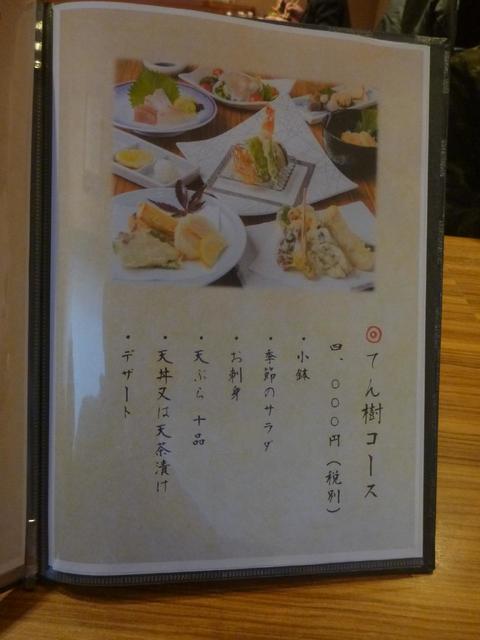 ◎てん樹コース
四、〇〇〇円（税別）
・小鉢
・季節のサラダ
・お刺身
・天ぷら 十品
・天丼又は天茶漬け
・デザート